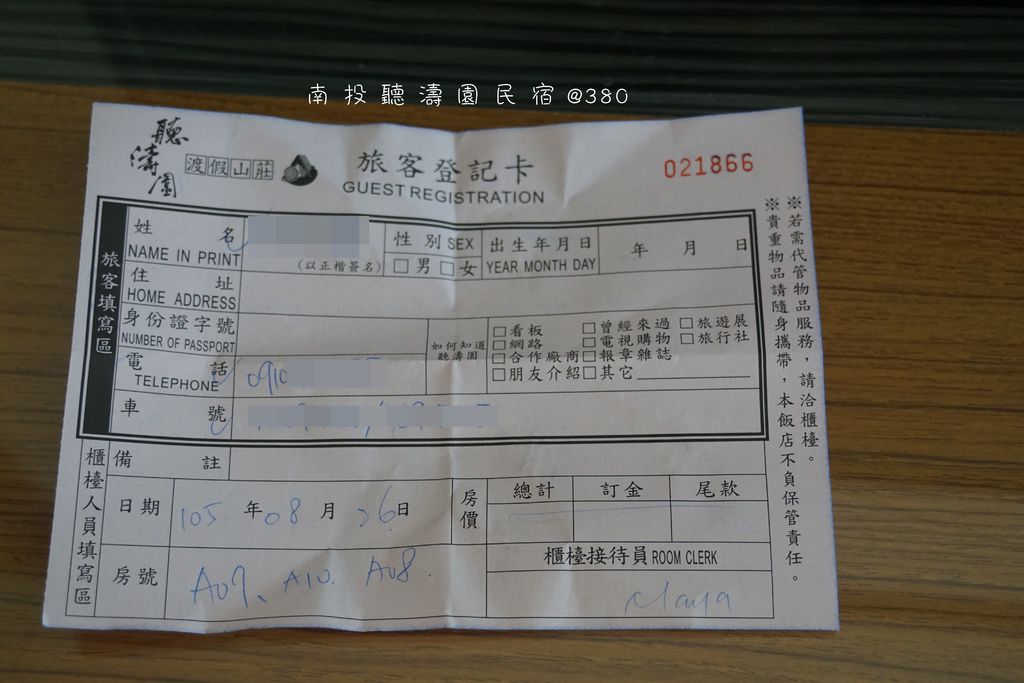 南投聽濤園民宿@380
聽濤園
渡假山莊
旅客登記卡
GUEST REGISTRATION
021866
旅客填寫區
姓名
NAME IN PRINT
(以正楷簽名)
性別 SEX
□男 □女
出生年月日
YEAR MONTH DAY
年 月 日
住址
HOME ADDRESS
身份證字號
NUMBER OF PASSPORT
如何知道
聽濤園
□看板 □曾經來過 □旅遊展
□網路 □電視購物 □旅行社
□合作廠商 □報章雜誌
□朋友介紹 □其它
電話
TELEPHONE
0910
車號
櫃檯人員填寫區
備註
日期
105年08月26日
房價
總計 訂金 尾款
房號
A09、A10. A08.
櫃檯接待員 ROOM CLERK
※若需代管物品服務，請洽櫃檯。
※貴重物品請隨身攜帶，本飯店不負保管責任。